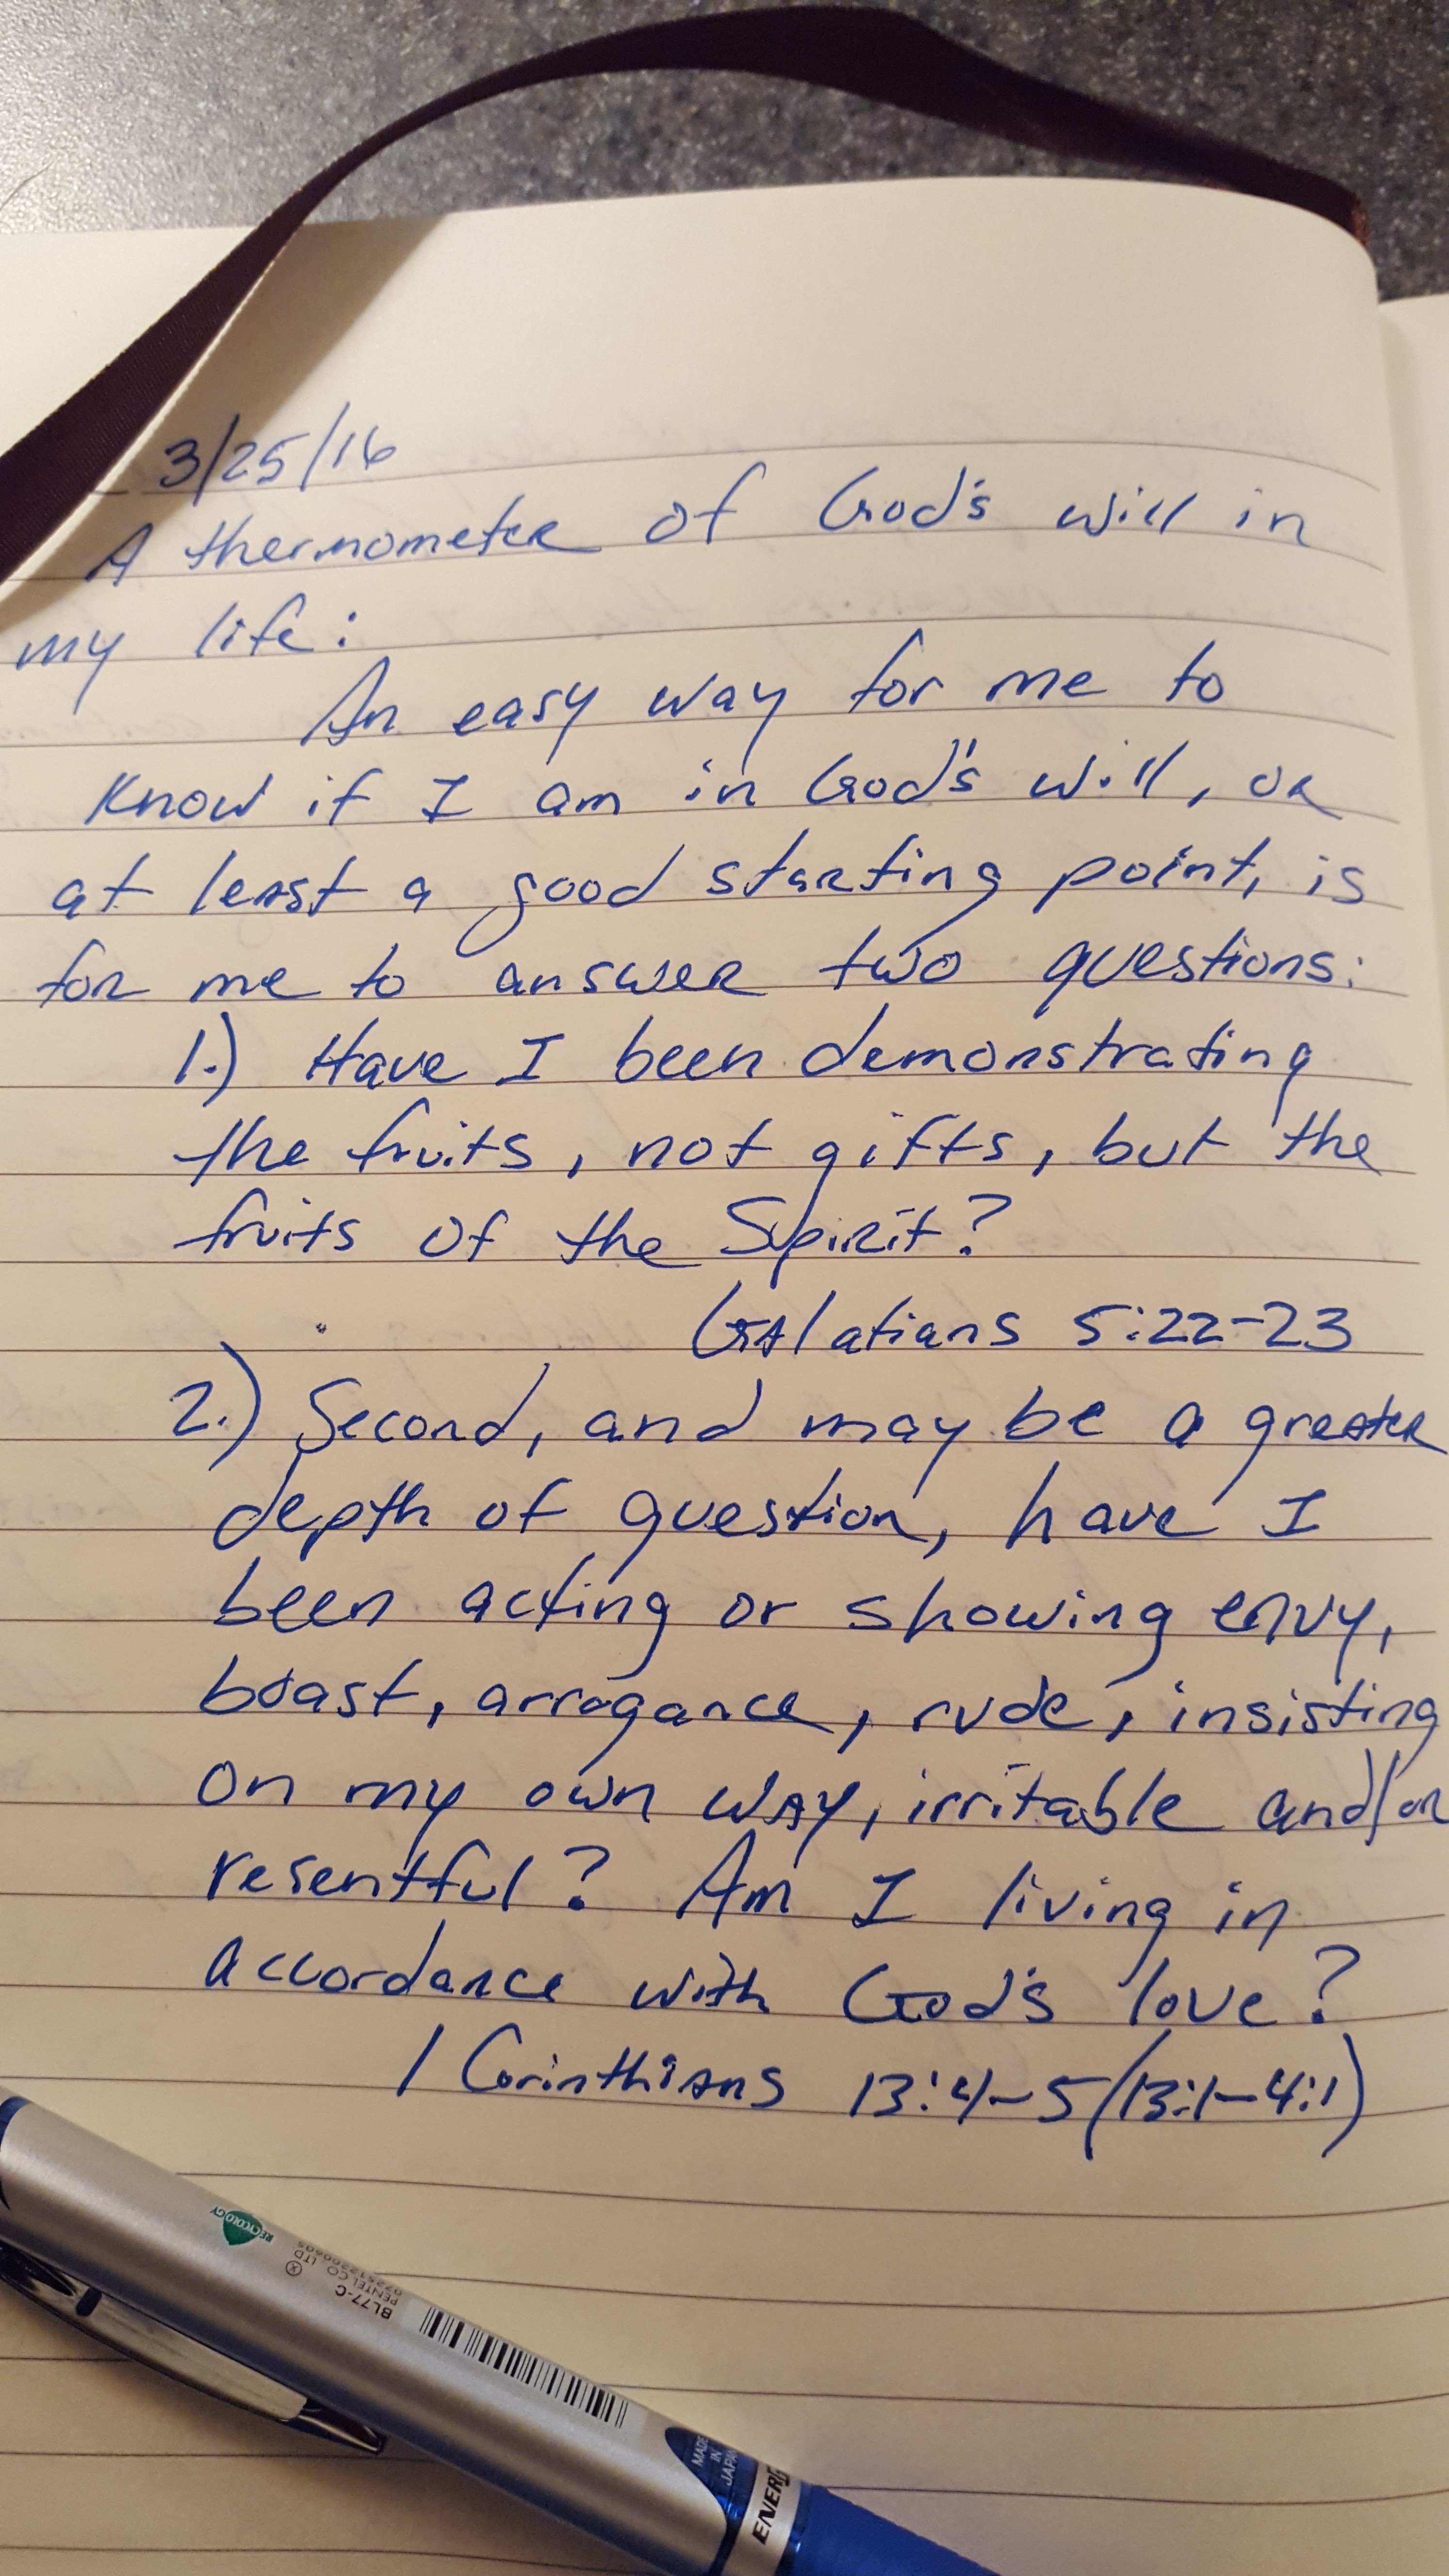 3/25/16
A thermometer of God's will in
my life:
An easy way for me to
know if I am in God's will, or
at least a good starting point, is
for me to answer two questions:
1.) Have I been demonstrating
the fruits, not gifts, but the
fruits of the Spirit?
Galatians 5:22-23
2.) Second, and may be a greater
depth of question, have I
been acting or showing envy,
boast, arrogance, rude, insisting
on my own way, irritable and/or
resentful? Am I living in
accordance with God's love?
1 Corinthians 13:4-5 (13:1-4:1)
RECYCOLOGY
PENTEL CO., LTD
BL77-C
MADE
IN
JAPAN